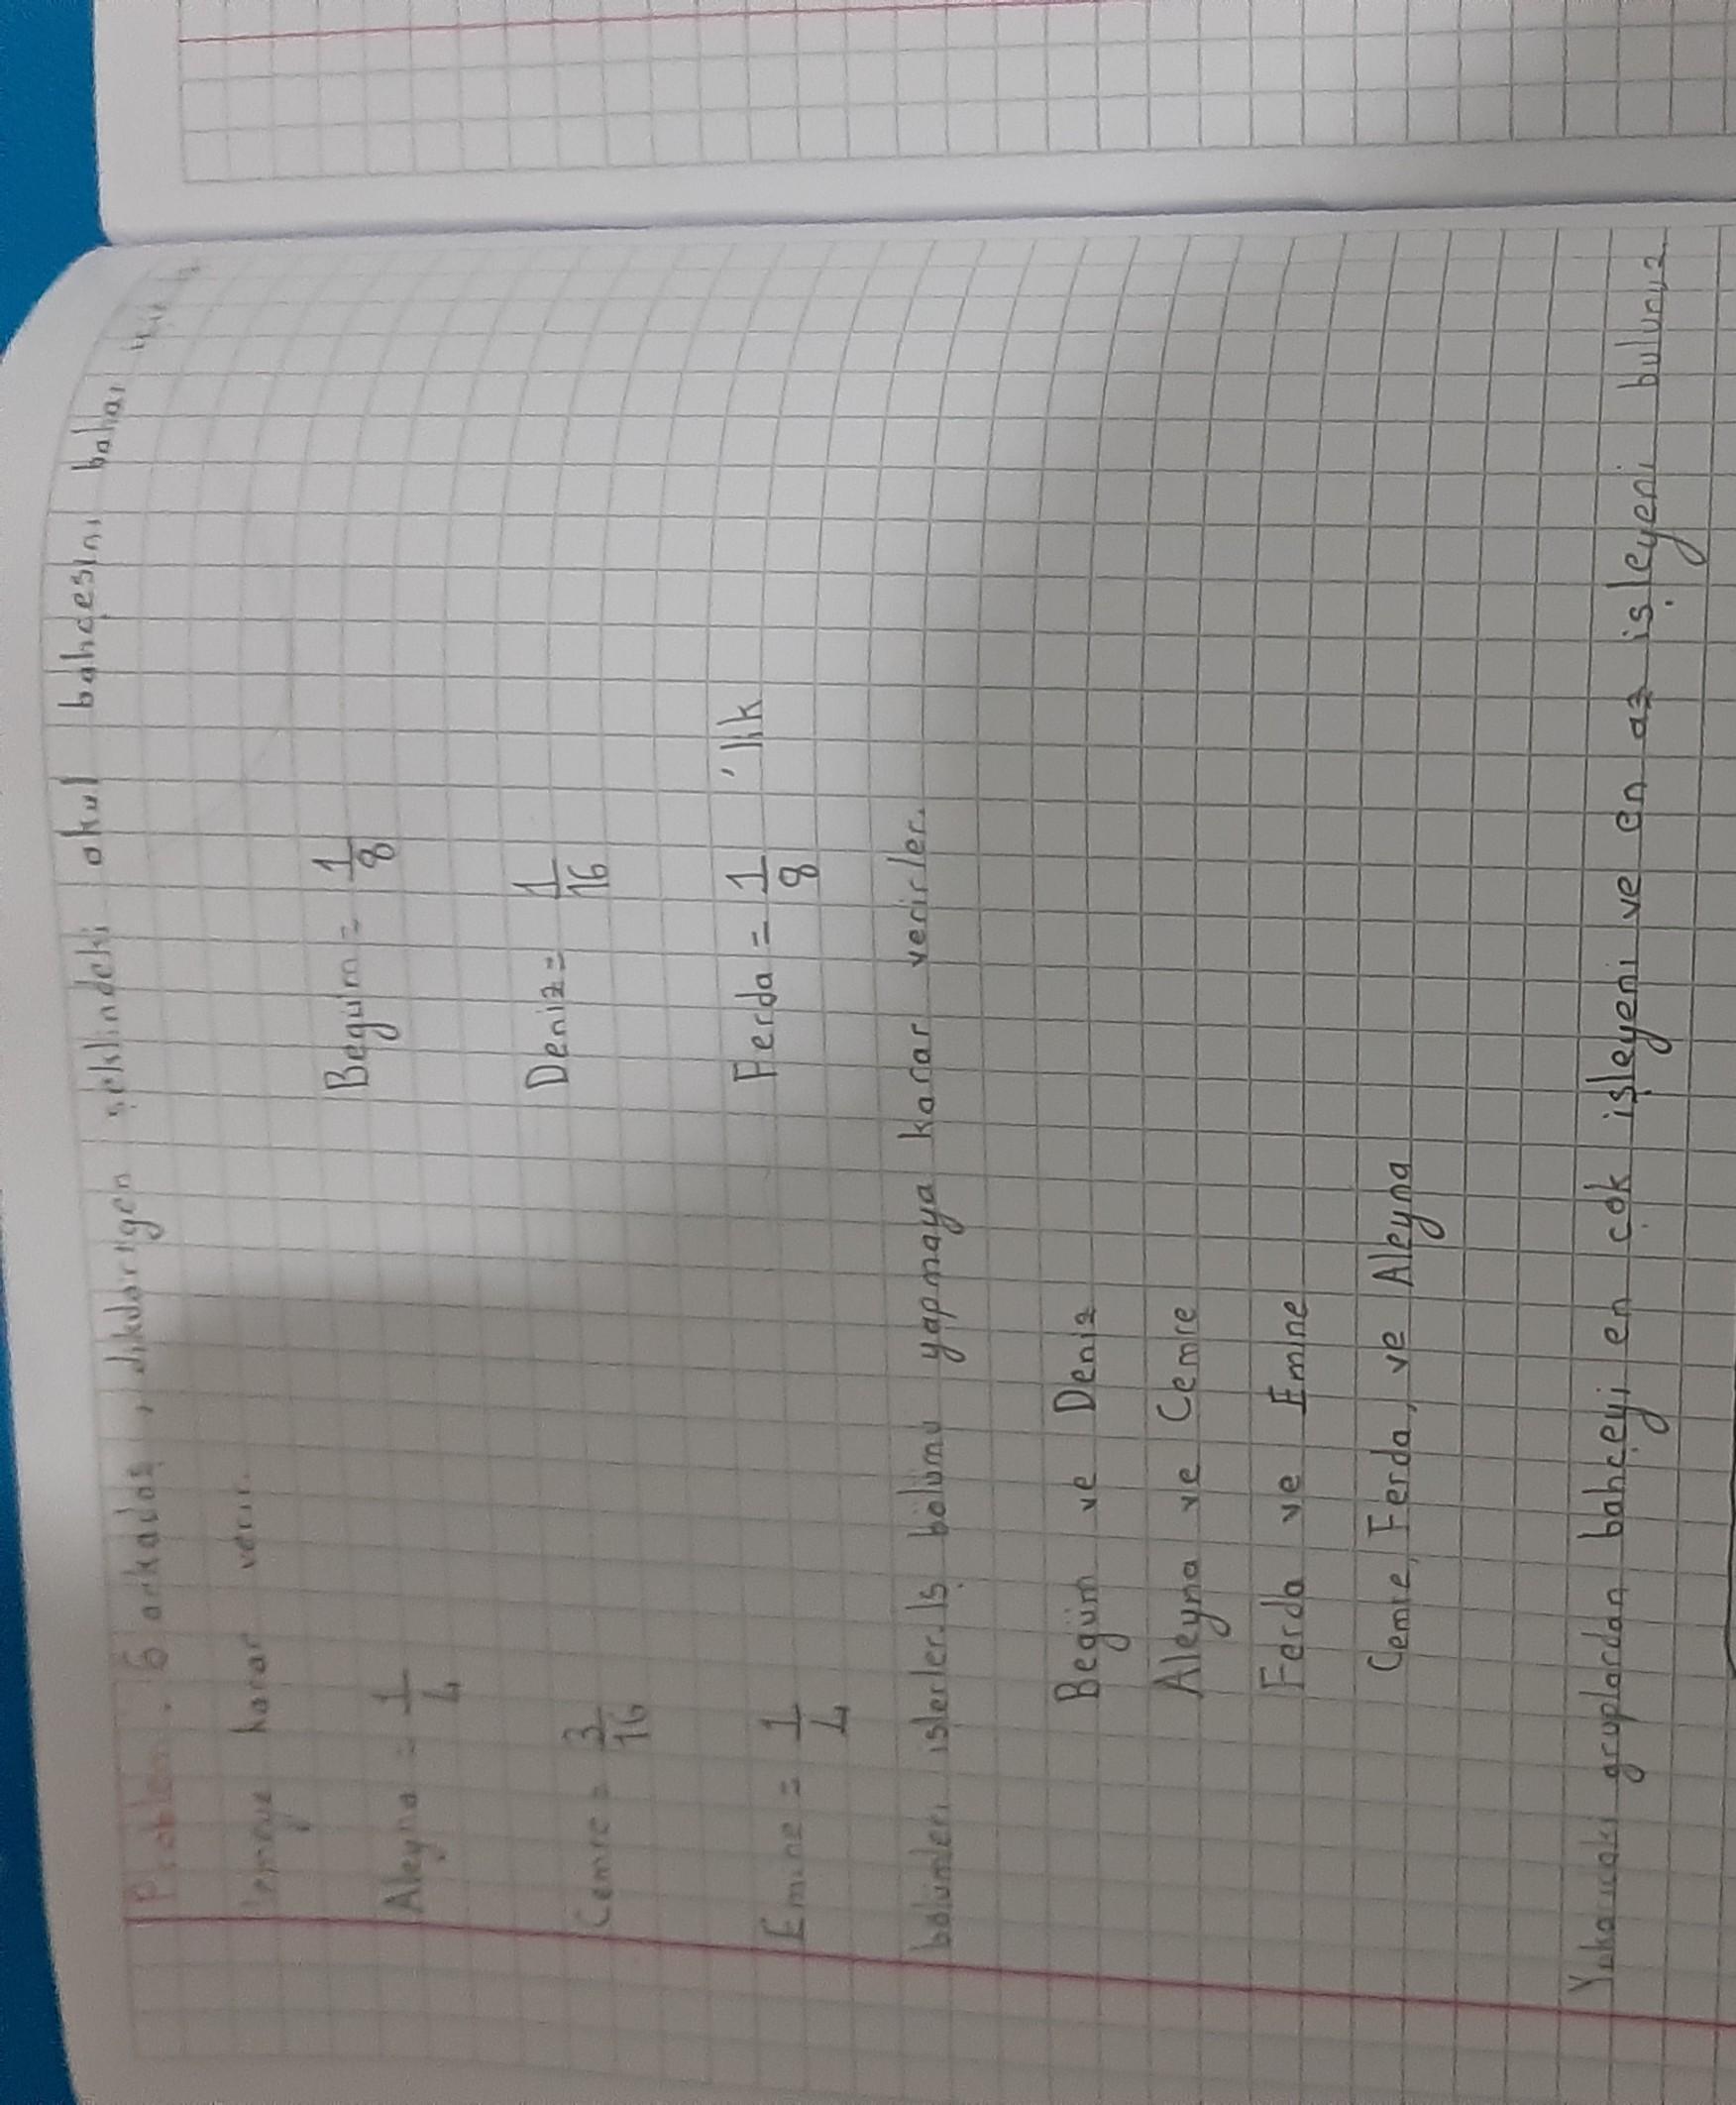 Problem: 6 arkadaş, dikdörtgen şeklindeki okul bahçesini bahar
lemeye karar verir.
Aleyna = 1/4 Begüm = 1/8
Cemre = 3/16 Deniz = 1/16
Emine = 1/4 Ferda = 1/8 'lik
bölümleri işlerler. İş bölümü yapmaya karar verirler.
Begüm ve Deniz
Aleyna ve Cemre
Ferda ve Emine
Cemre, Ferda, ve Aleyna
Yukarıdaki gruplardan bahçeyi en çok işleyeni ve en az işleyeni bulunuz